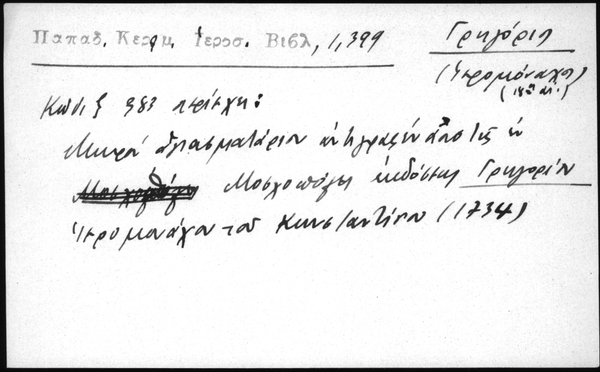 Παπαδ. Κεραμ. Ιεροσ. Βιβλ, 1, 399
Γρηγόριος
(Ἱερομόναχος)
(18ος αι.)
Κώδιξ 383 περιέχει:
Μικρόν ἁγιασματάριον ἀντιγραφέν ἀπό τῆς ἐν
Μοσχοπόλει ἐκδόσεως Γρηγορίου
Ἱερομονάχου τοῦ Κωνσταντίνου (1734)